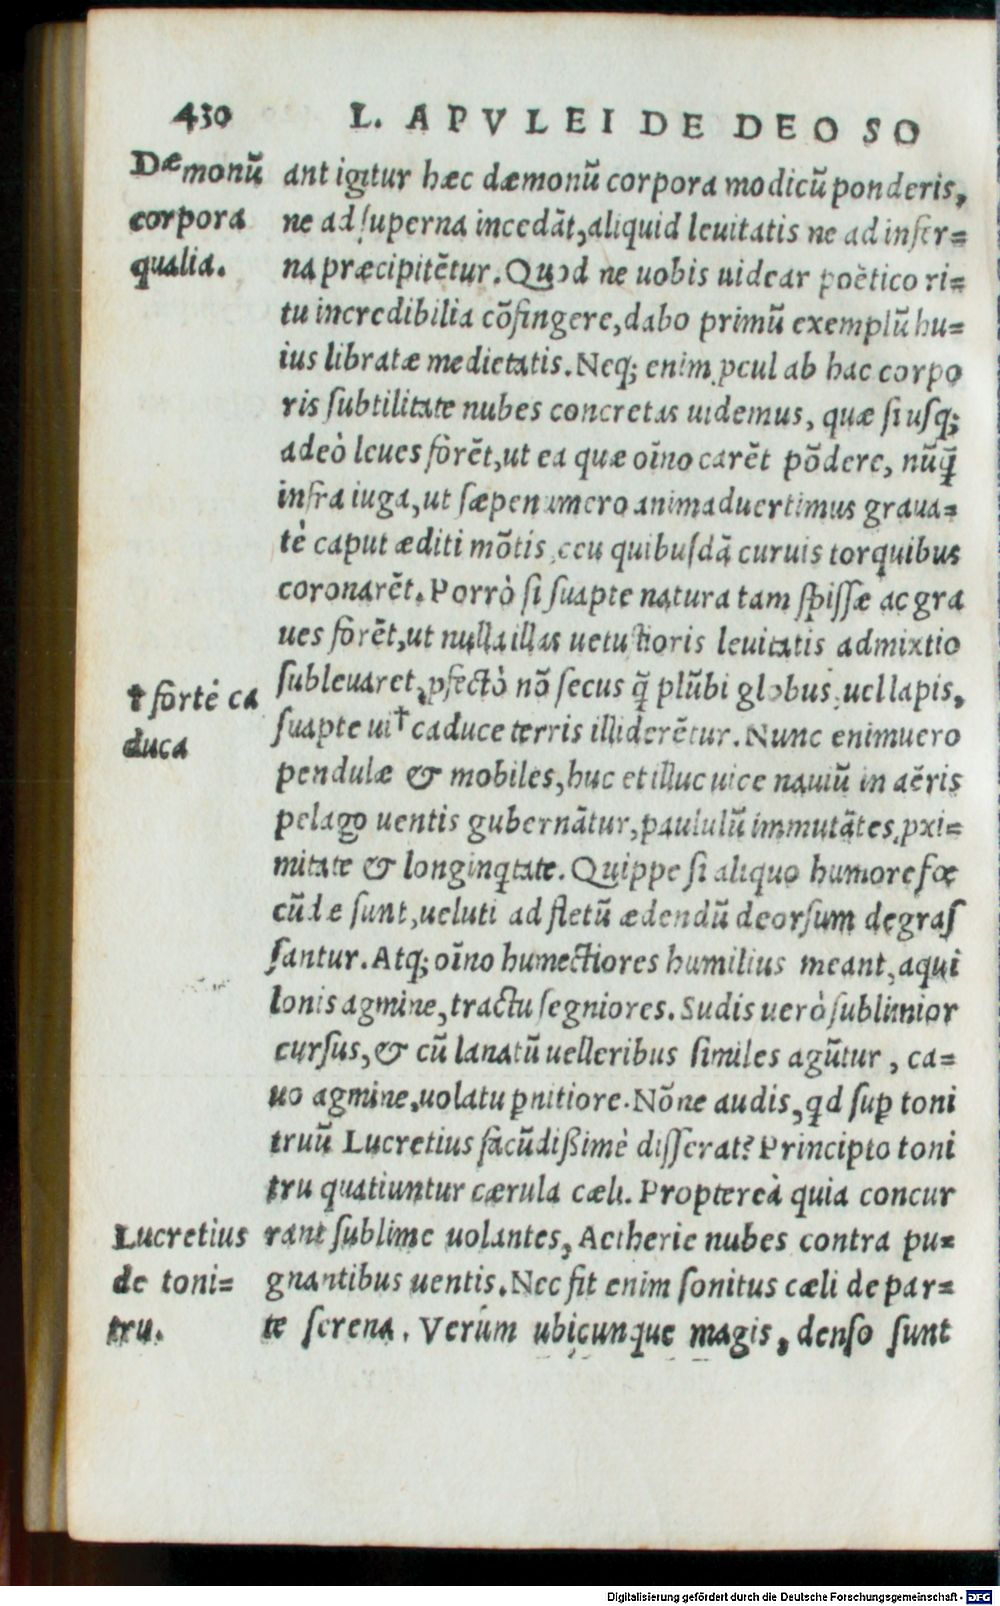 430 L. APVLEI DE DEO SO
Dæmonũ
corpora
qualia.
ant igitur hæc dæmonũ corpora modicũ ponderis,
ne ad ſuperna incedãt, aliquid leuitatis ne ad infer=
na præcipitẽtur. Quod ne uobis uidear poëtico ri=
tu incredibilia cõfingere, dabo primũ exemplũ hu=
ius libratæ medietatis. Neq; enim ꝓcul ab hac corpo
ris ſubtilitate nubes concretas uidemus, quæ ſi uſq;
adeò leues forẽt, ut ea quæ oĩno carẽt põdere, nũq̃
infra iuga, ut ſæpenumero animaduertimus graua=
tè caput æditi mõtis, ceu quibuſdã curuis torquibus
coronarẽt. Porrò ſi ſuapte natura tam ſpiſſæ ac gra
ues forẽt, ut nulla illas uetuſtioris leuitatis admixtio
ſubleuaret, ꝓfectò nõ ſecus q̃ plũbi globus, uel lapis,
† fortè ca
duca
ſuapte ui † caduce terris illiderẽtur. Nunc enimuero
pendulæ & mobiles, huc et illuc uice nauiũ in aëris
pelago uentis gubernãtur, paululũ immutãtes ꝓxi=
mitate & longinqtate. Quippe ſi aliquo humore fœ
cũdæ ſunt, ueluti ad fletũ ædendũ deorſum degraſ
ſantur. Atq; oĩno humectiores humilius meant, aqui
lonis agmine, tractu ſegniores. Sudis uerò ſublimior
curſus, & cũ lanatũ uelleribus ſimiles agũtur, ca=
uo agmine, uolatu ꝑnitiore. Nõne audis, qd ſuꝑ toni
truũ Lucretius facũdißimè diſſerat? Principto toni
tru quatiuntur cærula cæli. Proptereà quia concur
Lucretius
de toni=
tru.
rant ſublime uolantes, Aetherie nubes contra pu=
gnantibus uentis. Nec fit enim ſonitus cæli de par=
te ſerena. Verùm ubicunque magis, denſo ſunt
Digitalisierung gefördert durch die Deutsche Forschungsgemeinschaft - DFG